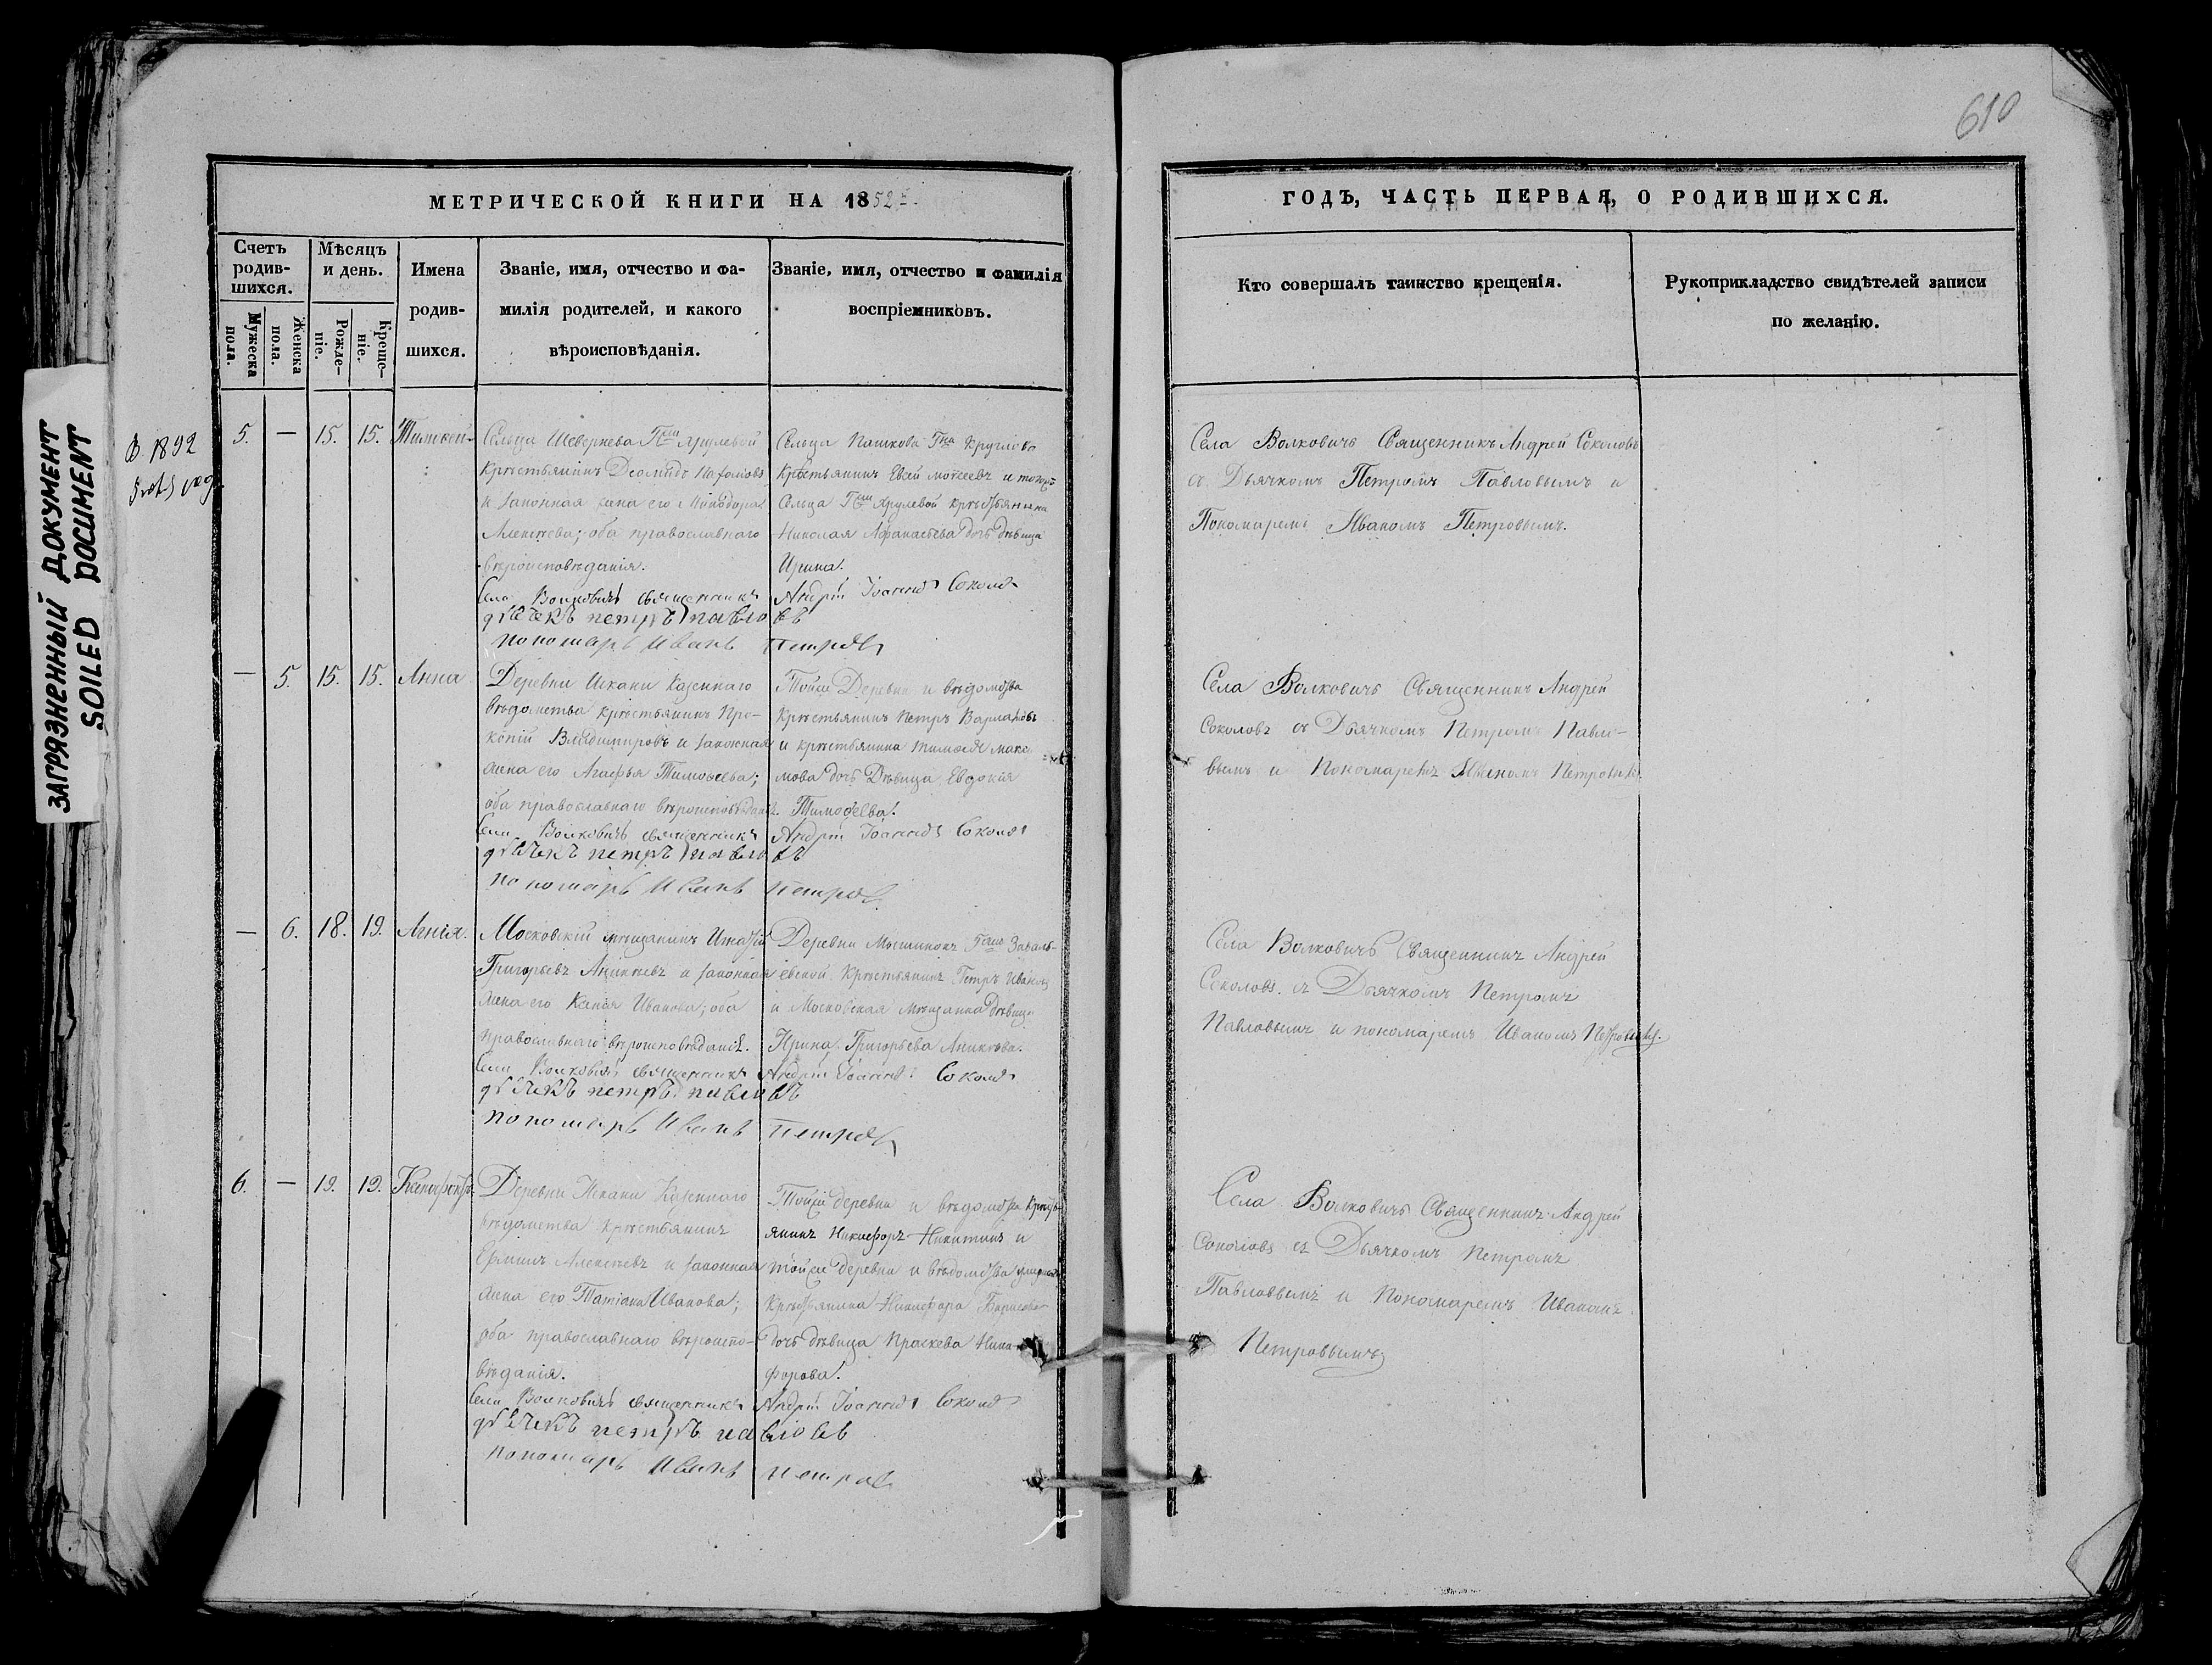 610
ЗАГРЯЗНЕННЫЙ ДОКУМЕНТ
SOILED DOCUMENT
В. 1892
МЕТРИЧЕСКОЙ КНИГИ НА 1852
Счетъ родив-шихся.
Мужеска пола.
Женска пола.
Мѣсяцъ и день.
Рожде-ніе.
Креще-ніе.
Имена
родив-
шихся.
Званіе, имя, отчество и фа-
милія родителей, и какого
вѣроисповѣданія.
Званіе, имя, отчество и фамилія
воспріемниковъ.
5. — 15. 15.
Сельца Шевернева Гжи
крестьянинъ
и законная жена его
Алексѣева; оба православнаго
вѣроисповѣданія.
Сельца Пашкова Гна Круглово
крестьянинъ Евсей Моисеевъ и
Сельца Гжи крестьянина
Николая Афанасьева дочь дѣвица
Ирина.
Села Волковичъ священникъ Андрей Іоанновъ Соколовъ
дьечекъ петръ павловъ
пономарь Иванъ петровъ
— 5. 15. 15. Анна
Деревни Искани Казеннаго
вѣдомства крестьянинъ Про-
копій Владимировъ и законная
жена его Агафья Тимофеева;
оба православнаго вѣроисповѣданія.
Тойже Деревни и вѣдомства
крестьянинъ Петръ
и крестьянина Тимофея Макси-
мова дочь Дѣвица Евдокія
Тимофеева.
Села Волковичъ священникъ Андрей Іоанновъ Соколовъ
дьечекъ петръ павловъ
пономарь Иванъ петровъ
— 6. 18. 19. Агнія.
Московскій мѣщанинъ
Григорьевъ Аникѣевъ и законная
жена его Ксенія Иванова; оба
православнаго вѣроисповѣданія.
Деревни Мышинокъ Гжи
крестьянинъ Петръ Ивановъ
и Московская мѣщанка дѣвица
Ирина Григорьева Аникѣева.
Села Волковичъ священникъ Андрей Іоанновъ Соколовъ
дьечекъ петръ павловъ
пономарь Иванъ петровъ
6. — 19. 19. Ксенофонтъ.
Деревни Искани Казеннаго
вѣдомства крестьянинъ
Ефимъ Алексѣевъ и законная
жена его Татіана Иванова;
оба православнаго вѣроиспо-
вѣданія.
Тойже деревни и вѣдомства крестья-
янинъ Никифоръ Никитинъ и
тойже деревни и вѣдомства
крестьянина Никифора Борисова
дочь дѣвица Праскева Ники-
форова.
Села Волковичъ священникъ Андрей Іоанновъ Соколовъ
дьечекъ петръ павловъ
пономарь Иванъ петровъ
ГОДЪ, ЧАСТЬ ПЕРВАЯ, О РОДИВШИХСЯ.
Кто совершалъ таинство крещенія.
Рукоприкладство свидѣтелей записи
по желанію.
Села Волковичъ Священникъ Андрей Соколовъ
съ Дьячкомъ Петромъ Павловымъ и
Пономаремъ Иваномъ Петровымъ.
Села Волковичъ Священникъ Андрей
Соколовъ съ Дьячкомъ Петромъ Павло-
вымъ и Пономаремъ Иваномъ Петровымъ
Села Волковичъ Священникъ Андрей
Соколовъ съ Дьячкомъ Петромъ
Павловымъ и пономаремъ Иваномъ Петровымъ.
Села Волковичъ Священникъ Андрей
Соколовъ съ Дьячкомъ Петромъ
Павловымъ и Пономаремъ Иваномъ
Петровымъ